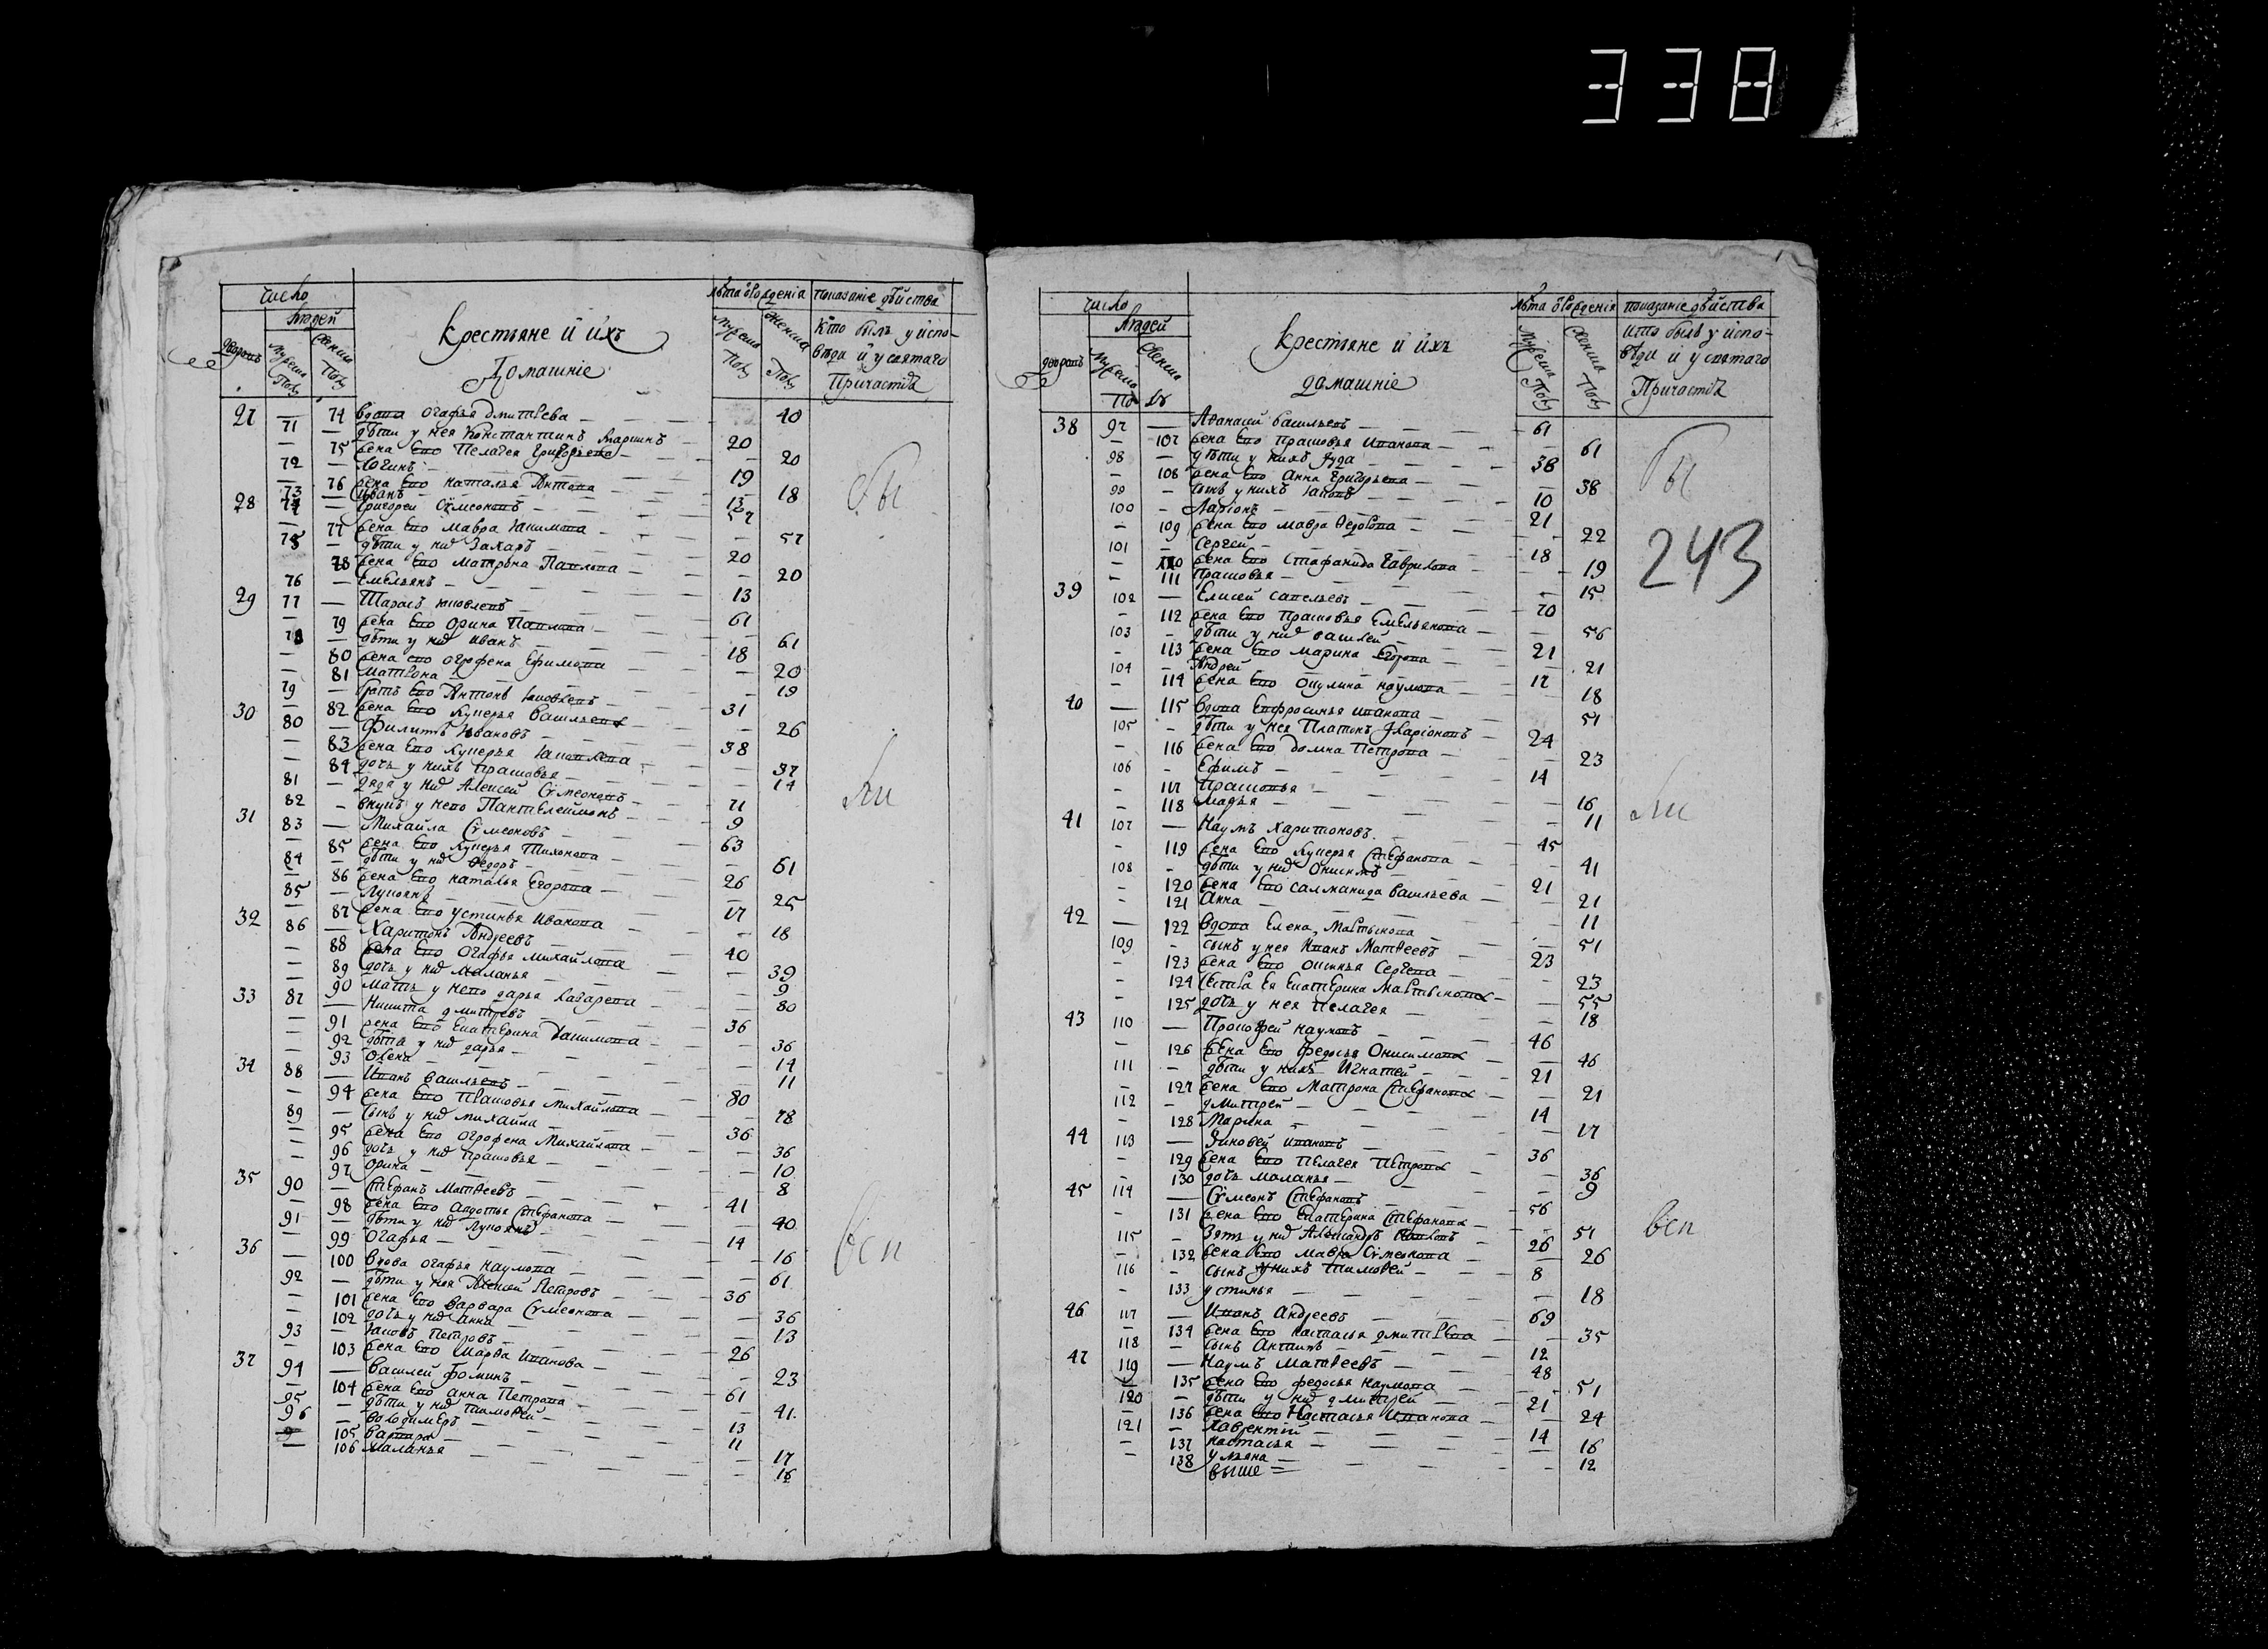 338
число
людей
дворовъ
мужеска
полу
женска
полу
Крестьяне и ихъ
Домашніе
лѣта ѿ рожденія
мужеска
полу
женска
полу
показаніе дѣйства
кто былъ у испо-
вѣди и у святаго
Причастіѧ
27 — 74 вдова Огафья Дмитѣева — 40
71 — дѣти у нея Константинъ Маркинъ — 20
— 75 жена Его Пелагея Григорьева — 20
72 — Логинъ — 19
— 76 жена Его Наталья Антона — 18
73 — Иванъ — 13
28 74 — Григорей Сѷмеоновъ — 57
— 77 жена Его Мавра Якимова — 57
75 — дѣти у них Захаръ — 20
78 жена Его Матрона Павлова — 20
76 — Емельянъ — 13
29 77 — Тарасъ Яковлевъ — 61
— 79 жена Его Орина Павлова — 61
78 — дѣти у них Иванъ — 18
— 80 жена его Огрофена Ефимова — 20
— 81 Матрона — 19
79 — братъ Его Антонъ Яковлевъ — 31
— 82 жена Его Лукерья Васильева — 26
30 80 — Филипъ Ивановъ — 38
— 83 жена Его Лукерья Яковлева — 37
— 84 дочь у нихъ Прасковья — 14
81 — дядя у них Алексей Сѷмеоновъ — 71
82 — внукъ у него Пантелеймонъ — 9
31 83 — Михайла Сѷмеоновъ — 63
— 85 жена Его Лукерья Тихонова — 61
84 — дѣти у них Ѳедоръ — 26
— 86 жена Его Наталья Егорьва — 25
85 — Лукоянъ — 17
— 87 жена Его Устинья Иванова — 18
32 86 — Харитонъ Андреевъ — 40
— 88 жена Его Огафья Михайлова — 39
— 89 дочь у них Маланья — 9
— 90 Мать у него Дарья Лазарева — 80
33 87 — Никита Дмитревъ — 36
— 91 жена Его Екатерина Данилова — 36
— 92 дѣти у них Дарья — 14
— 93 Олена — 11
34 88 — Иванъ Васильевъ — 80
— 94 жена Его Прасковья Михайлова — 78
89 — сынъ у них Михайла — 36
— 95 жена Его Огрофена Михайлова — 36
— 96 дочь у них Прасковья — 10
— 97 Орина — 8
35 90 — Стефанъ Матвеевъ — 41
— 98 жена Его Авдотья Стефанова — 40
91 — дѣти у них Лукоянъ — 14
— 99 Огафья — 16
36 — 100 Вдова Огафья Наумова — 61
92 — дѣти у нея Алексей Петровъ — 36
— 101 жена Его Варвара Сѷмеонова — 36
— 102 дочь у них Анна — 13
93 — Яковъ Петровъ — 26
— 103 жена Его Марѳа Иванова — 23
37 94 — Василей Фоминъ — 61
— 104 жена Его Анна Петрова — 41
95 — дѣти у них Тимоѳей — 13
96 — Володимеръ — 11
— 105 Варвара — 17
— 106 Маланья — 16
бы
ли
всп
число
людей
дворовъ
мужеска
женска
по лъ
Крестьяне и ихъ
домашніе
лѣта ѿ рожденія
мужеска
полу
женска
полу
показаніе дѣйства
кто былъ у испо-
вѣди и у святаго
Причастіѧ
38 97 — Аѳанасей Васильевъ — 61
— 107 жена Его Прасковья Иванова — 61
98 — дѣти у нихъ Іуда — 38
— 108 жена Его Анна Григорьева — 38
99 — сынъ у нихъ Яковъ — 10
100 — Ларіонъ — 21
— 109 жена Его Мавра Ѳедорова — 22
101 — Сергей — 18
— 110 жена Его Стефанида Гаврилова — 19
— 111 Прасковья — 15
39 102 — Елисей Савельевъ — 70
— 112 жена Его Прасковья Емельянова — 56
103 — дѣти у них Василей — 21
— 113 жена Его Марина Егорова — 21
104 — Андрей — 17
— 114 жена Его Окулина Наумова — 18
40 — 115 Вдова Евфросинья Иванова — 51
105 — дѣти у нея Платонъ Іларіоновъ — 24
— 116 жена Его Домна Петрова — 23
106 — Ефимъ — 14
— 117 Прасковья — 16
— 118 Марья — 11
41 107 — Наумъ Харитоновъ — 45
— 119 жена Его Лукерья Стефанова — 41
108 — дѣти у них Онисимъ — 21
— 120 жена Его Салманида Васильева — 21
— 121 Анна — 11
42 — 122 Вдова Елена Мартынова — 51
109 — сынъ у нея Иванъ Матвеевъ — 23
— 123 жена Его Оксинья Сергева — 23
— 124 сестра Ея Екатерина Мартынова — 55
— 125 дочь у нея Пелагея — 18
43 110 — Прокофей Наумовъ — 46
— 126 жена Его Федосья Онисимова — 46
111 — дѣти у нихъ Игнатей — 21
— 127 жена Его Матрона Стефанова — 21
112 — Дмитрей — 14
— 128 Марина — 17
44 113 — Зиновей Ивановъ — 36
— 129 жена Его Пелагея Петрова — 36
— 130 дочь Маланья — 9
45 114 — Сѷмеонъ Стефановъ — 56
— 131 жена Его Екатерина Стефанова — 51
115 — Зять у них Александръ — 26
— 132 жена Его Мавра Сѷмеонова — 26
116 — сынъ у нихъ Тимоѳей — 8
— 133 Устинья — 18
46 117 — Иванъ Андреевъ — 69
— 134 жена Его Настасья Дмитѣва — 35
118 — сынъ Антипъ — 12
47 119 — Наумъ Матвеевъ — 48
— 135 жена Его Федосья Наумова — 51
120 — дѣти у них Дмитрей — 21
— 136 жена Его Настасья Иванова — 24
121 — Лаврентій — 14
— 137 Настасья — 16
— 138 Ульяна — 12
выше
бы
243
ли
всп